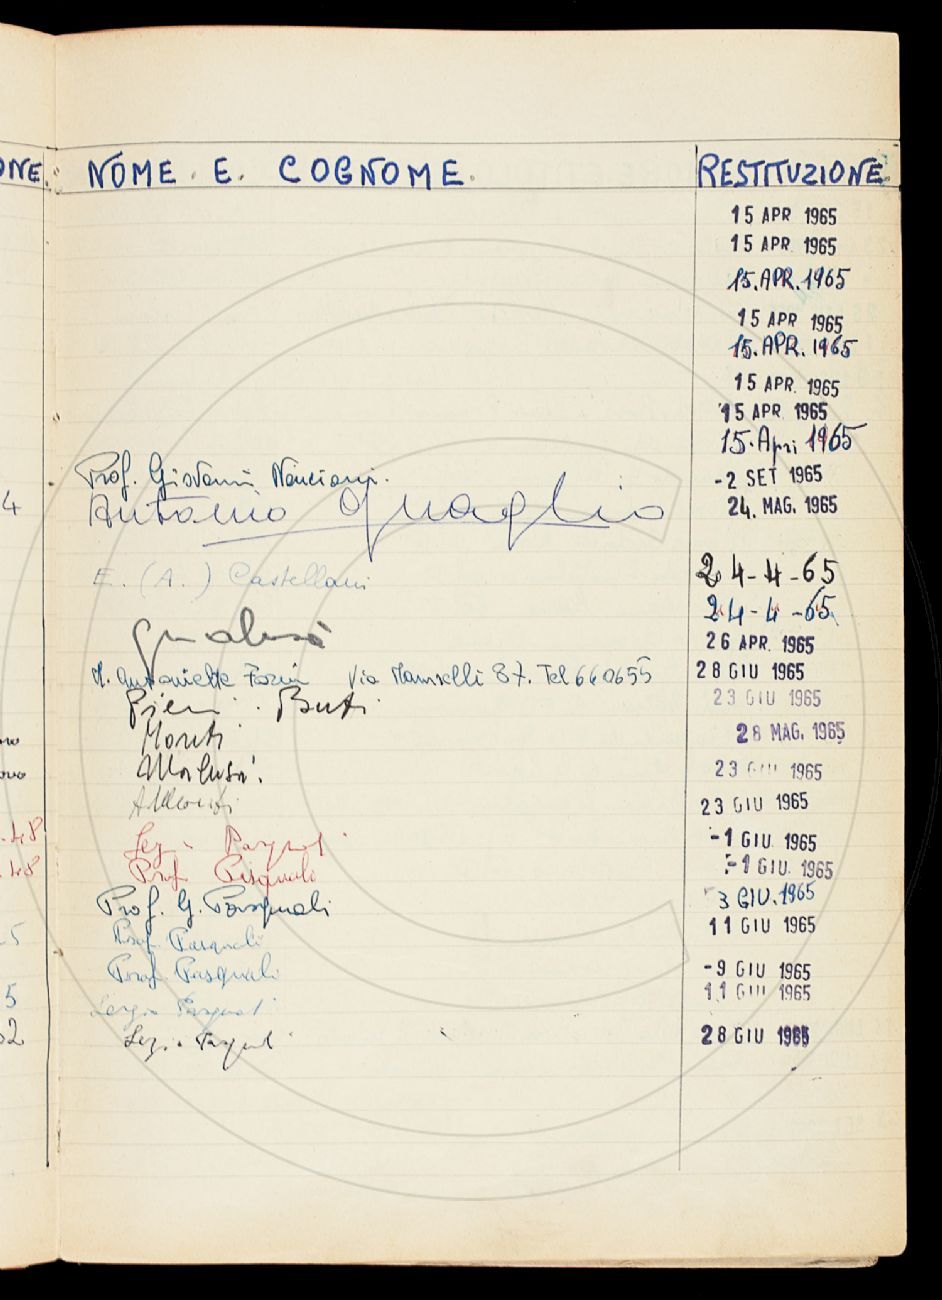 ONE. NOME. E. COGNOME. RESTITUZIONE.
15 APR 1965
15 APR 1965
15.APR.1965
15 APR 1965
15.APR.1965
15 APR. 1965
15 APR. 1965
15.Apri 1965
Prof. Giovanni -2 SET 1965
4 Antonio Quaglio 24. MAG. 1965
E. (A.) Castellani 24-4-65
24-4-65
26 APR. 1965
M. Antonietta Via 87. Tel 660655 28 GIU 1965
Pieri. Buti 23 GIU 1965
Monti 28 MAG. 1965
23 GIU 1965
23 GIU 1965
.48 Sergio Pasquali -1 GIU. 1965
.48 Prof. Pasquali -1 GIU. 1965
Prof. G. Pasquali 3 GIU. 1965
5 Prof. Pasquali 11 GIU 1965
Prof. Pasquali -9 GIU 1965
5 Sergio Pasquali 11 GIU 1965
52 Sergio Pasquali 28 GIU 1965